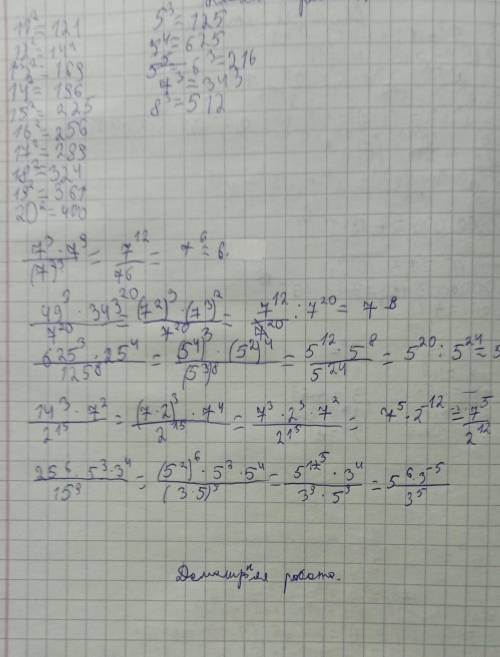 11² = 121
12² = 143
13² = 169
14² = 196
15² = 225
16² = 256
17² = 289
18² = 324
19² = 361
20² = 400
5³ = 125
5⁴ = 625
5⁵ = 6³ = 216
7³ = 343
8³ = 512
7³ · 7⁹ / (7)³ = 7¹² / 76 = 7⁶ = 6.
49³ · 343²⁰ / 7²⁰ = (7²)³ · (7³)² / 7²⁰ = 7¹² / 7²⁰ : 7²⁰ = 7 -8
625³ · 25⁴ / 125⁸ = (5⁴)³ · (5²)⁴ / (5³)⁸ = 5¹² · 5⁸ / 5²⁴ = 5²⁰ : 5²⁴ = 5
14³ · 7² / 2¹⁵ = (7 · 2)³ · 7⁴ / 2¹⁵ = 7³ · 2³ · 7² / 2¹⁵ = 7⁵ · 2⁻¹² = 7⁵ / 2¹²
25⁶ · 5³ · 3⁴ / 15⁹ = (5²)⁶ · 5³ · 5⁴ / (3 · 5)⁹ = 5¹⁵ · 3⁴ / 3⁹ · 5⁹ = 5⁶ · 3⁻⁵ / 3⁵
Домашняя работа.